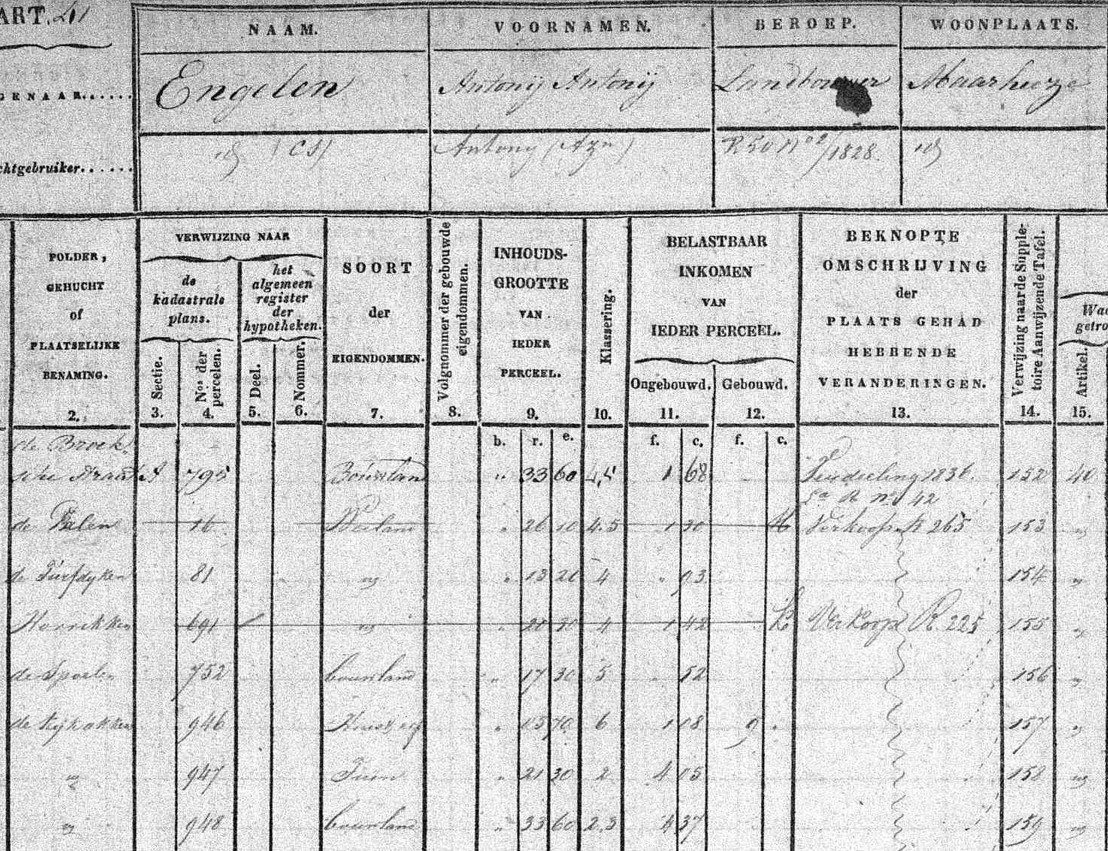 ART. 41
NAAM. VOORNAMEN. BEROEP. WOONPLAATS.
GENAAR...... Engelen Antonij Antonij Landbouwer Maarheeze
chtgebruiker...... id (CS) Antony (Azn) P. 50 No 2/1828. id
POLDER, GEHUCHT of PLAATSELIJKE BENAMING. 2.
VERWIJZING NAAR
de kadastrale plans.
Sectie. 3.
Nos der percelen. 4.
het algemeen register der hypotheken.
Deel. 5.
Nommer. 6.
SOORT der EIGENDOMMEN. 7.
Volgnommer der gebouwde eigendommen. 8.
INHOUDS-GROOTTE VAN IEDER PERCEEL. 9.
Klassering. 10.
BELASTBAAR INKOMEN VAN IEDER PERCEEL.
Ongebouwd. 11.
Gebouwd. 12.
BEKNOPTE OMSCHRIJVING der PLAATS GEHAD HEBBENDE VERANDERINGEN. 13.
Verwijzing naar de Supple-toire Aanwijzende Tafel. 14.
Artikel. 15.
b. r. e. f. c. f. c.
de Broek
Straat A 795 Bouwland " 33 60 4,5 1 68 1836. 152 40
No 42
de 16 Weiland " 26 10 4.5 1 30 Verkoop R 265 153 "
de Turfdyken 81 " " 13 20 4 " 93 154 "
691 " " 20 30 4 1 42 Verkoop R 225 155 "
de 752 bouwland " 17 30 5 " 52 156 "
de 946 Huis & erf " 15 70 6 1 18 9 . 157 "
" 947 Tuin " 21 30 2 4 05 158 "
" 948 bouwland " 33 60 2.3 4 37 159 "